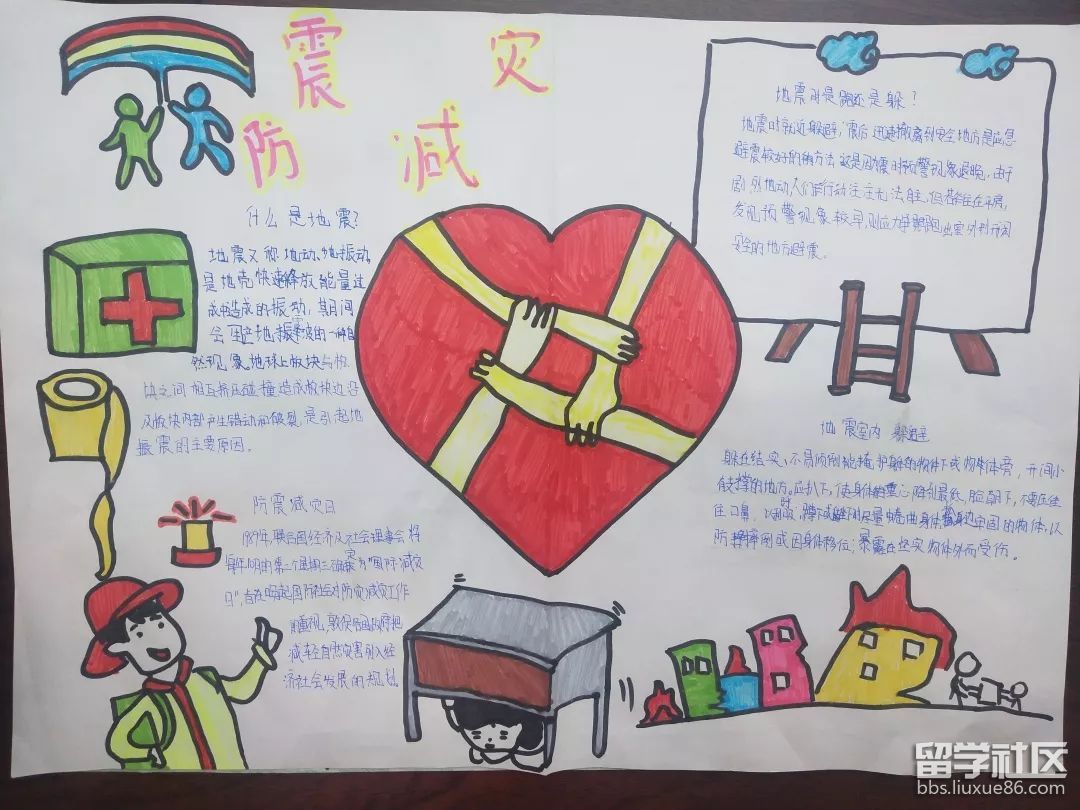 防震减灾
什么是地震?
地震又称地动、地振动
是地壳快速释放能量过
造成的振动,期间
会产生地震波的一种自
然现象地球上板块与板
块之间相互挤压碰撞造成板块边沿
及板块内部产生错动和破裂,是引起地
振震的主要原因。
防震减灾日
联合国经济及社会理事会将
每年10月的第二个星期三确定为"国际减灾
日",旨在唤起国际社会对防灾减灾工作
的重视,敦促各国政府把
减轻自然灾害列入经
济社会发展的规划。
地震时是跑还是躲?
地震时就近躲避,震后迅速撤离到安全地方是应急
避震较好的方法。这是因震时预警现象很短,由于
剧烈地动,人们的行动往往无法自主,但若住在平房,
发现预警现象较早,则应力争跑出室外到开阔
安全的地方避震。
地震室内躲避
躲在结实、不易倾倒能掩护身体的物体下或物体旁,开间小
有支撑的地方。应趴下,使身体重心降到最低,脸朝下,不要压住
住口鼻,以利呼吸,蹲下或坐下时尽量蜷曲身体抓身边牢固的物体,以
防摔倒或因身体移位,暴露在坚实物体外而受伤。
留学社区
bbs.liuxue86.com